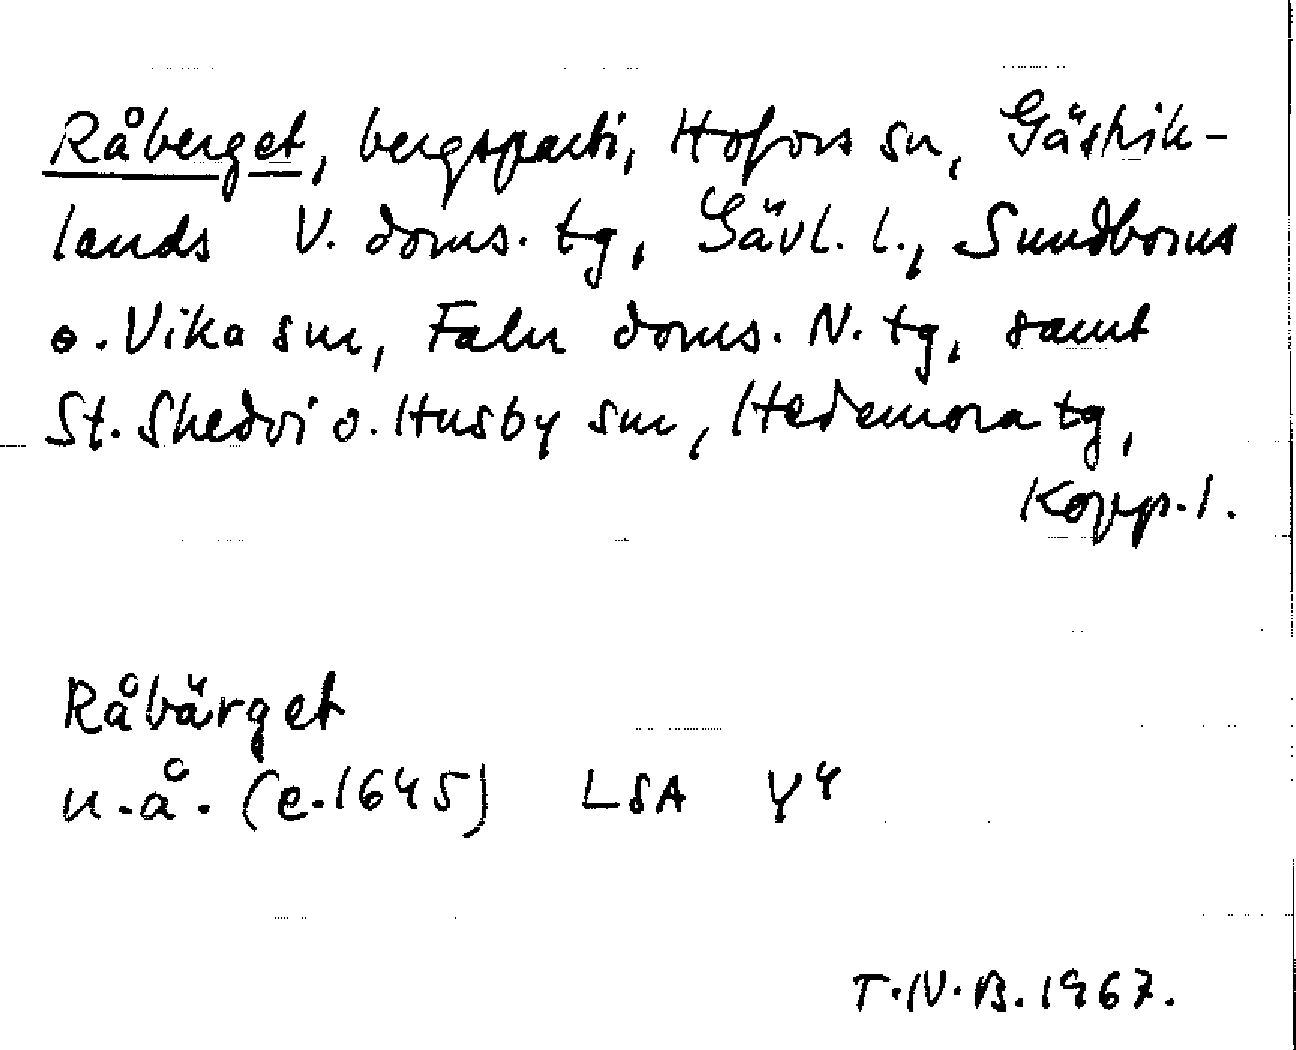 Råberget, bergsparti, Hofors sn, Gästrik-
lands V. doms. tg, Gävl. l., Sundborns
o. Vika snr, Falu doms. N. tg, samt
St. Skedvi o. Husby snr, Hedemora tg,
Kopp. l.
Råbärget
u.å. (c.1645) LSA Y4
T.N.B. 1967.